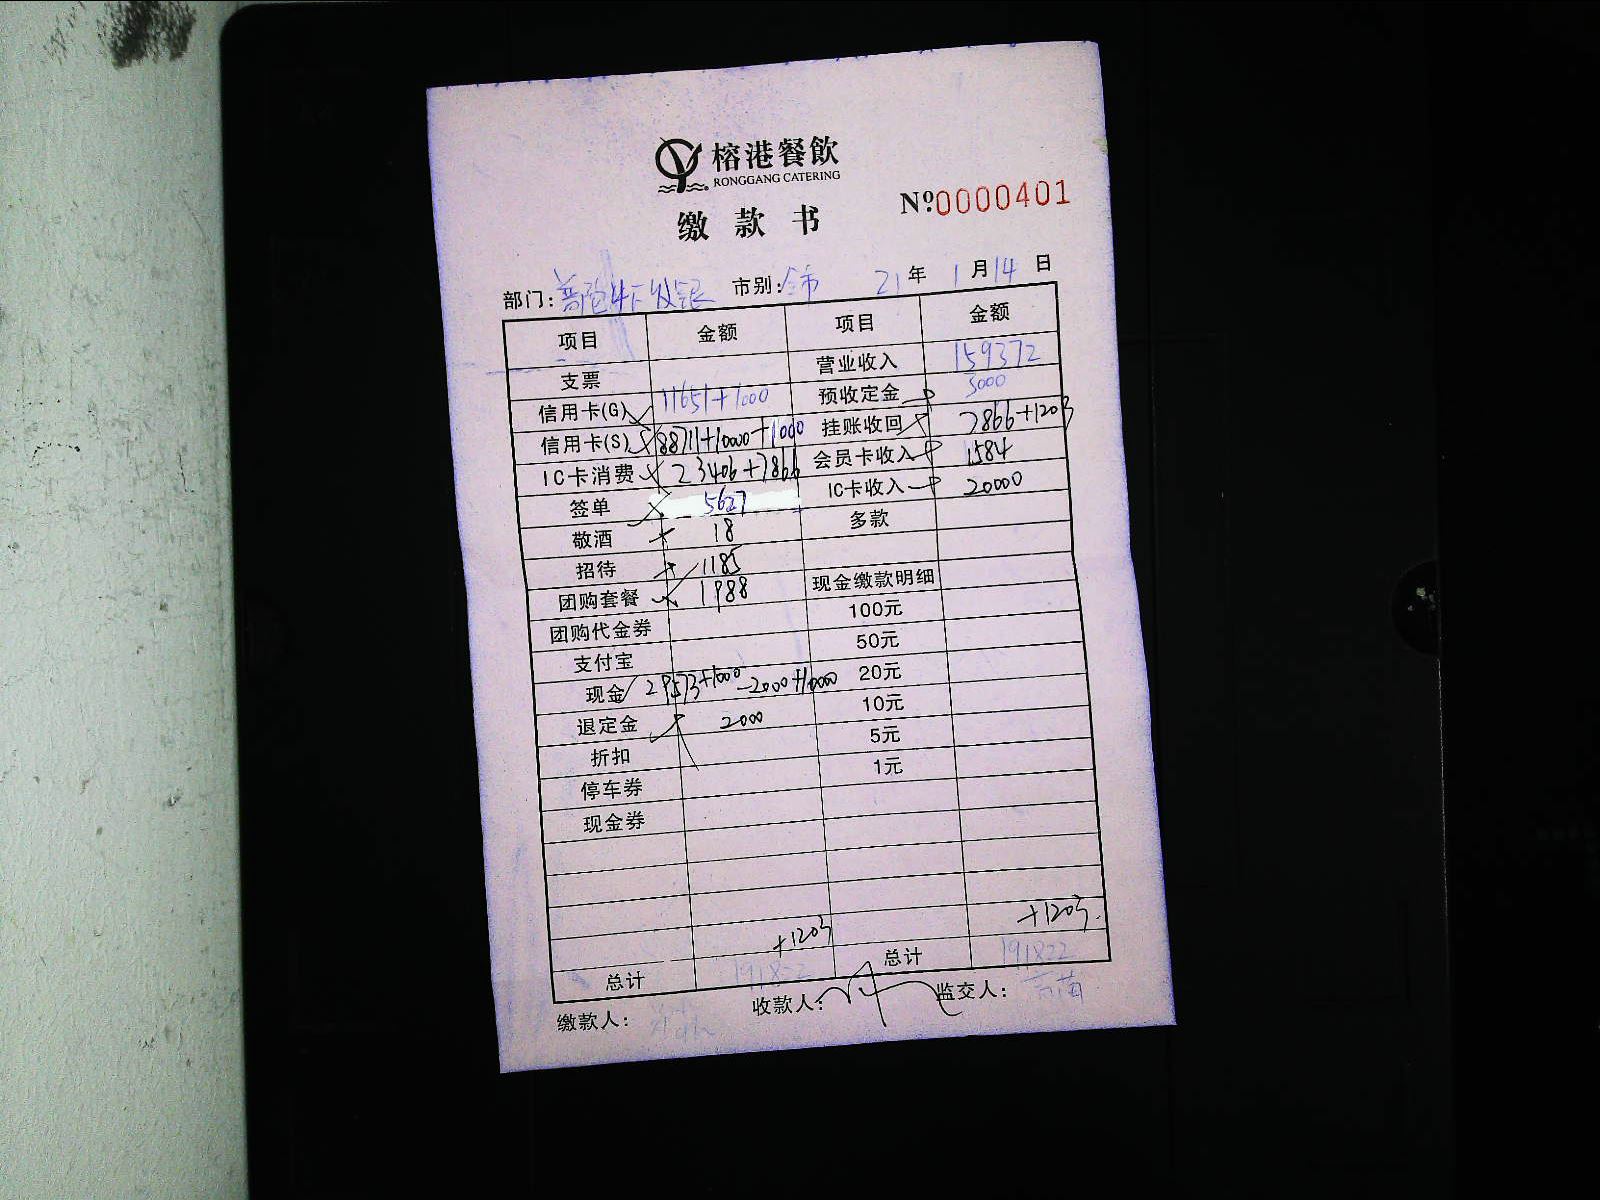 榕港餐飲
RONGGANG CATERING
缴款书
Nº0000401
部门: 市别:全市 21年1月14日
项目 金额 项目 金额
支票 营业收入 159372
信用卡(G) 11651+1000 预收定金 3000
信用卡(S) 88711+10000+1000 挂账收回 7866+1203
IC卡消费 23406+7866 会员卡收入 1584
签单 5627 IC卡收入 20000
敬酒 18 多款
招待 1185
团购套餐 1988 现金缴款明细
团购代金券 100元
支付宝 50元
现金 29573+1000-2000+10000 20元
退定金 2000 10元
折扣 5元
停车券 1元
现金券
+1203 +1203
总计 191822 总计 191822
缴款人: 收款人: 监交人: